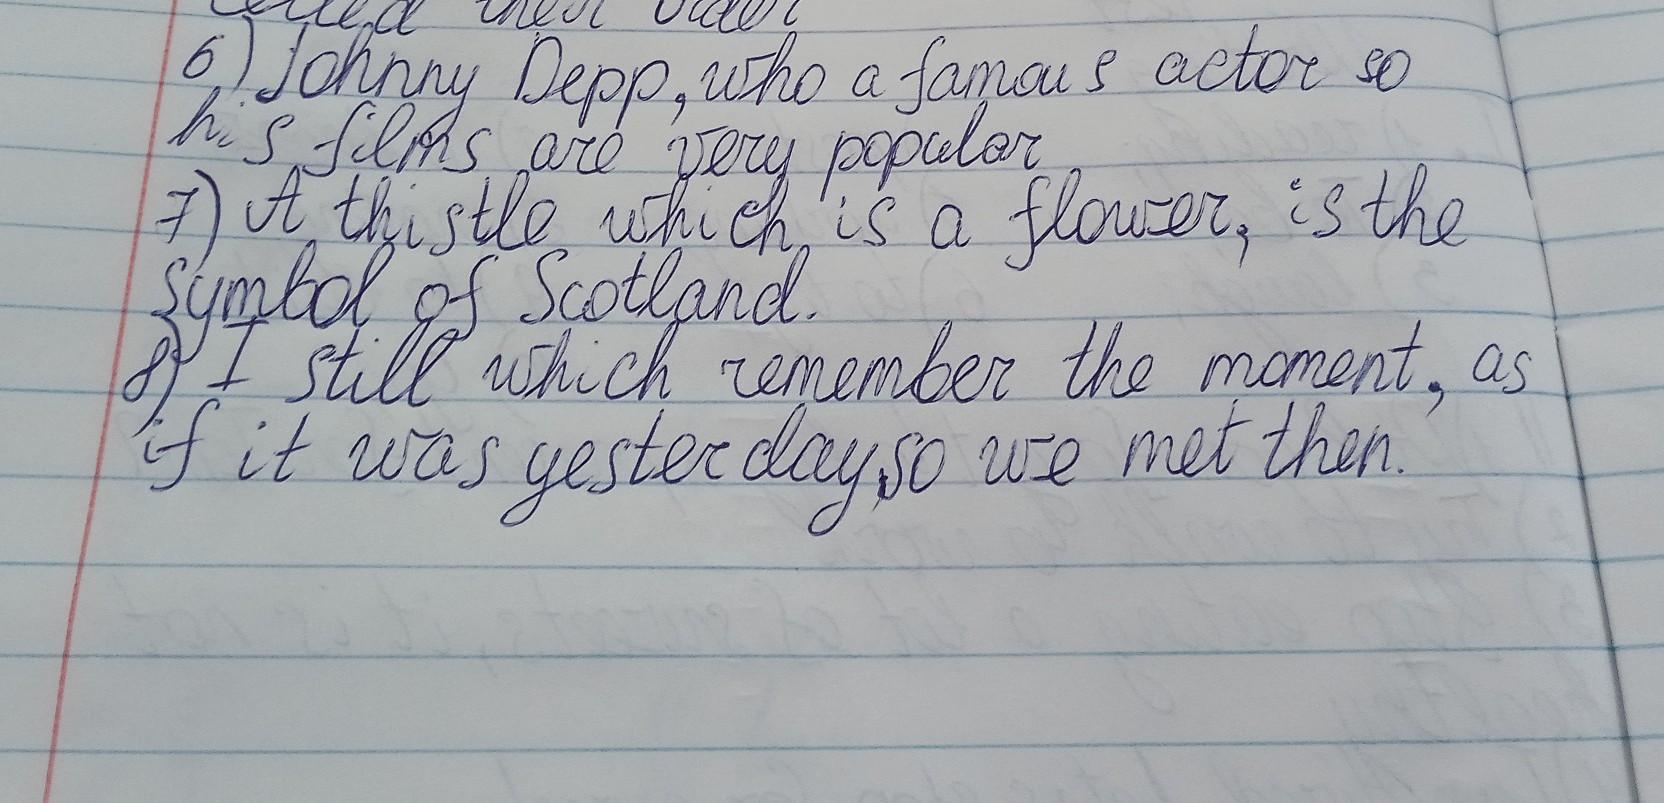 called their order
6) Johnny Depp, who a famous actor so
his films are very popular
7) A thistle, which, is a flower, is the
symbol of Scotland.
8) I still which remember the moment, as
if it was yesterday, so we met then.